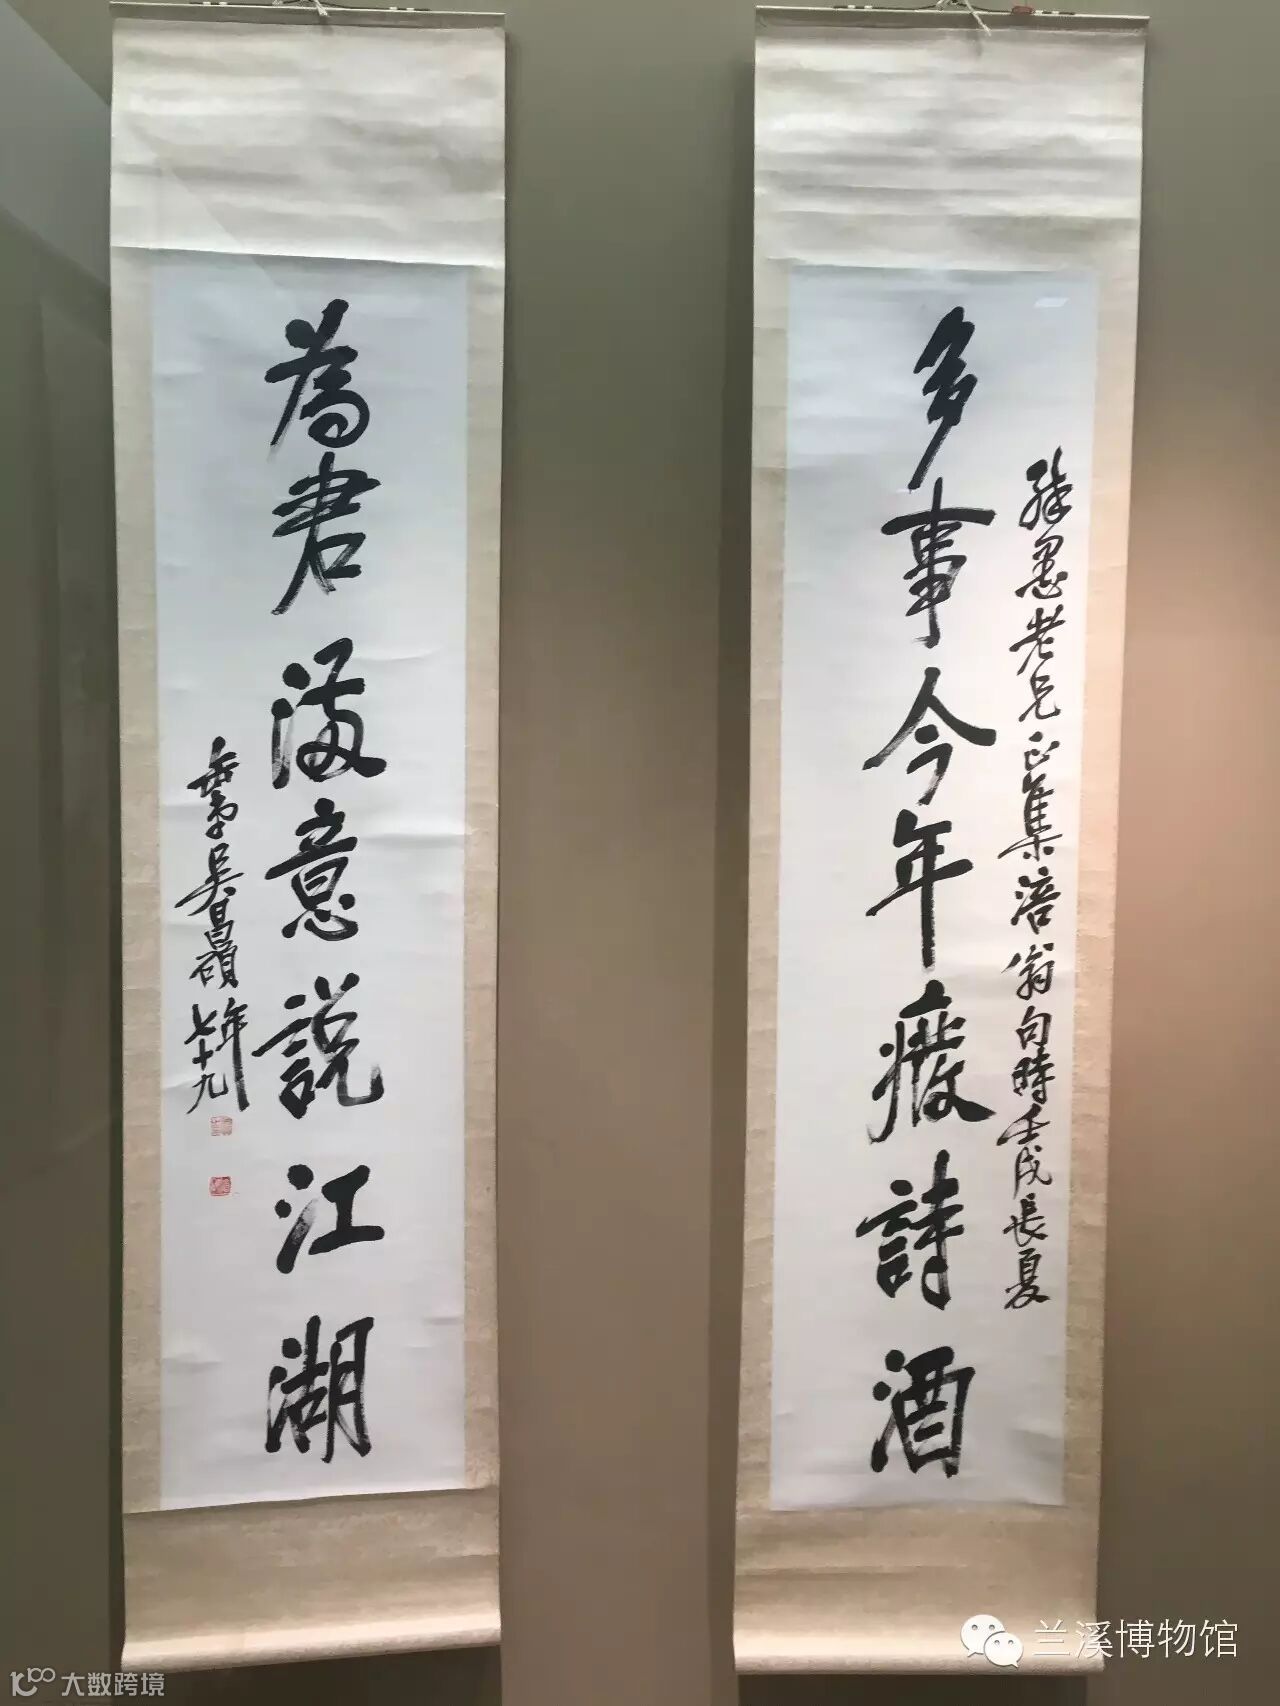 多事今年癈詩酒
愚老兄正集涪翁句時壬戌長夏
為君滿意説江湖
吳昌碩年七十九
兰溪博物馆
大数跨境